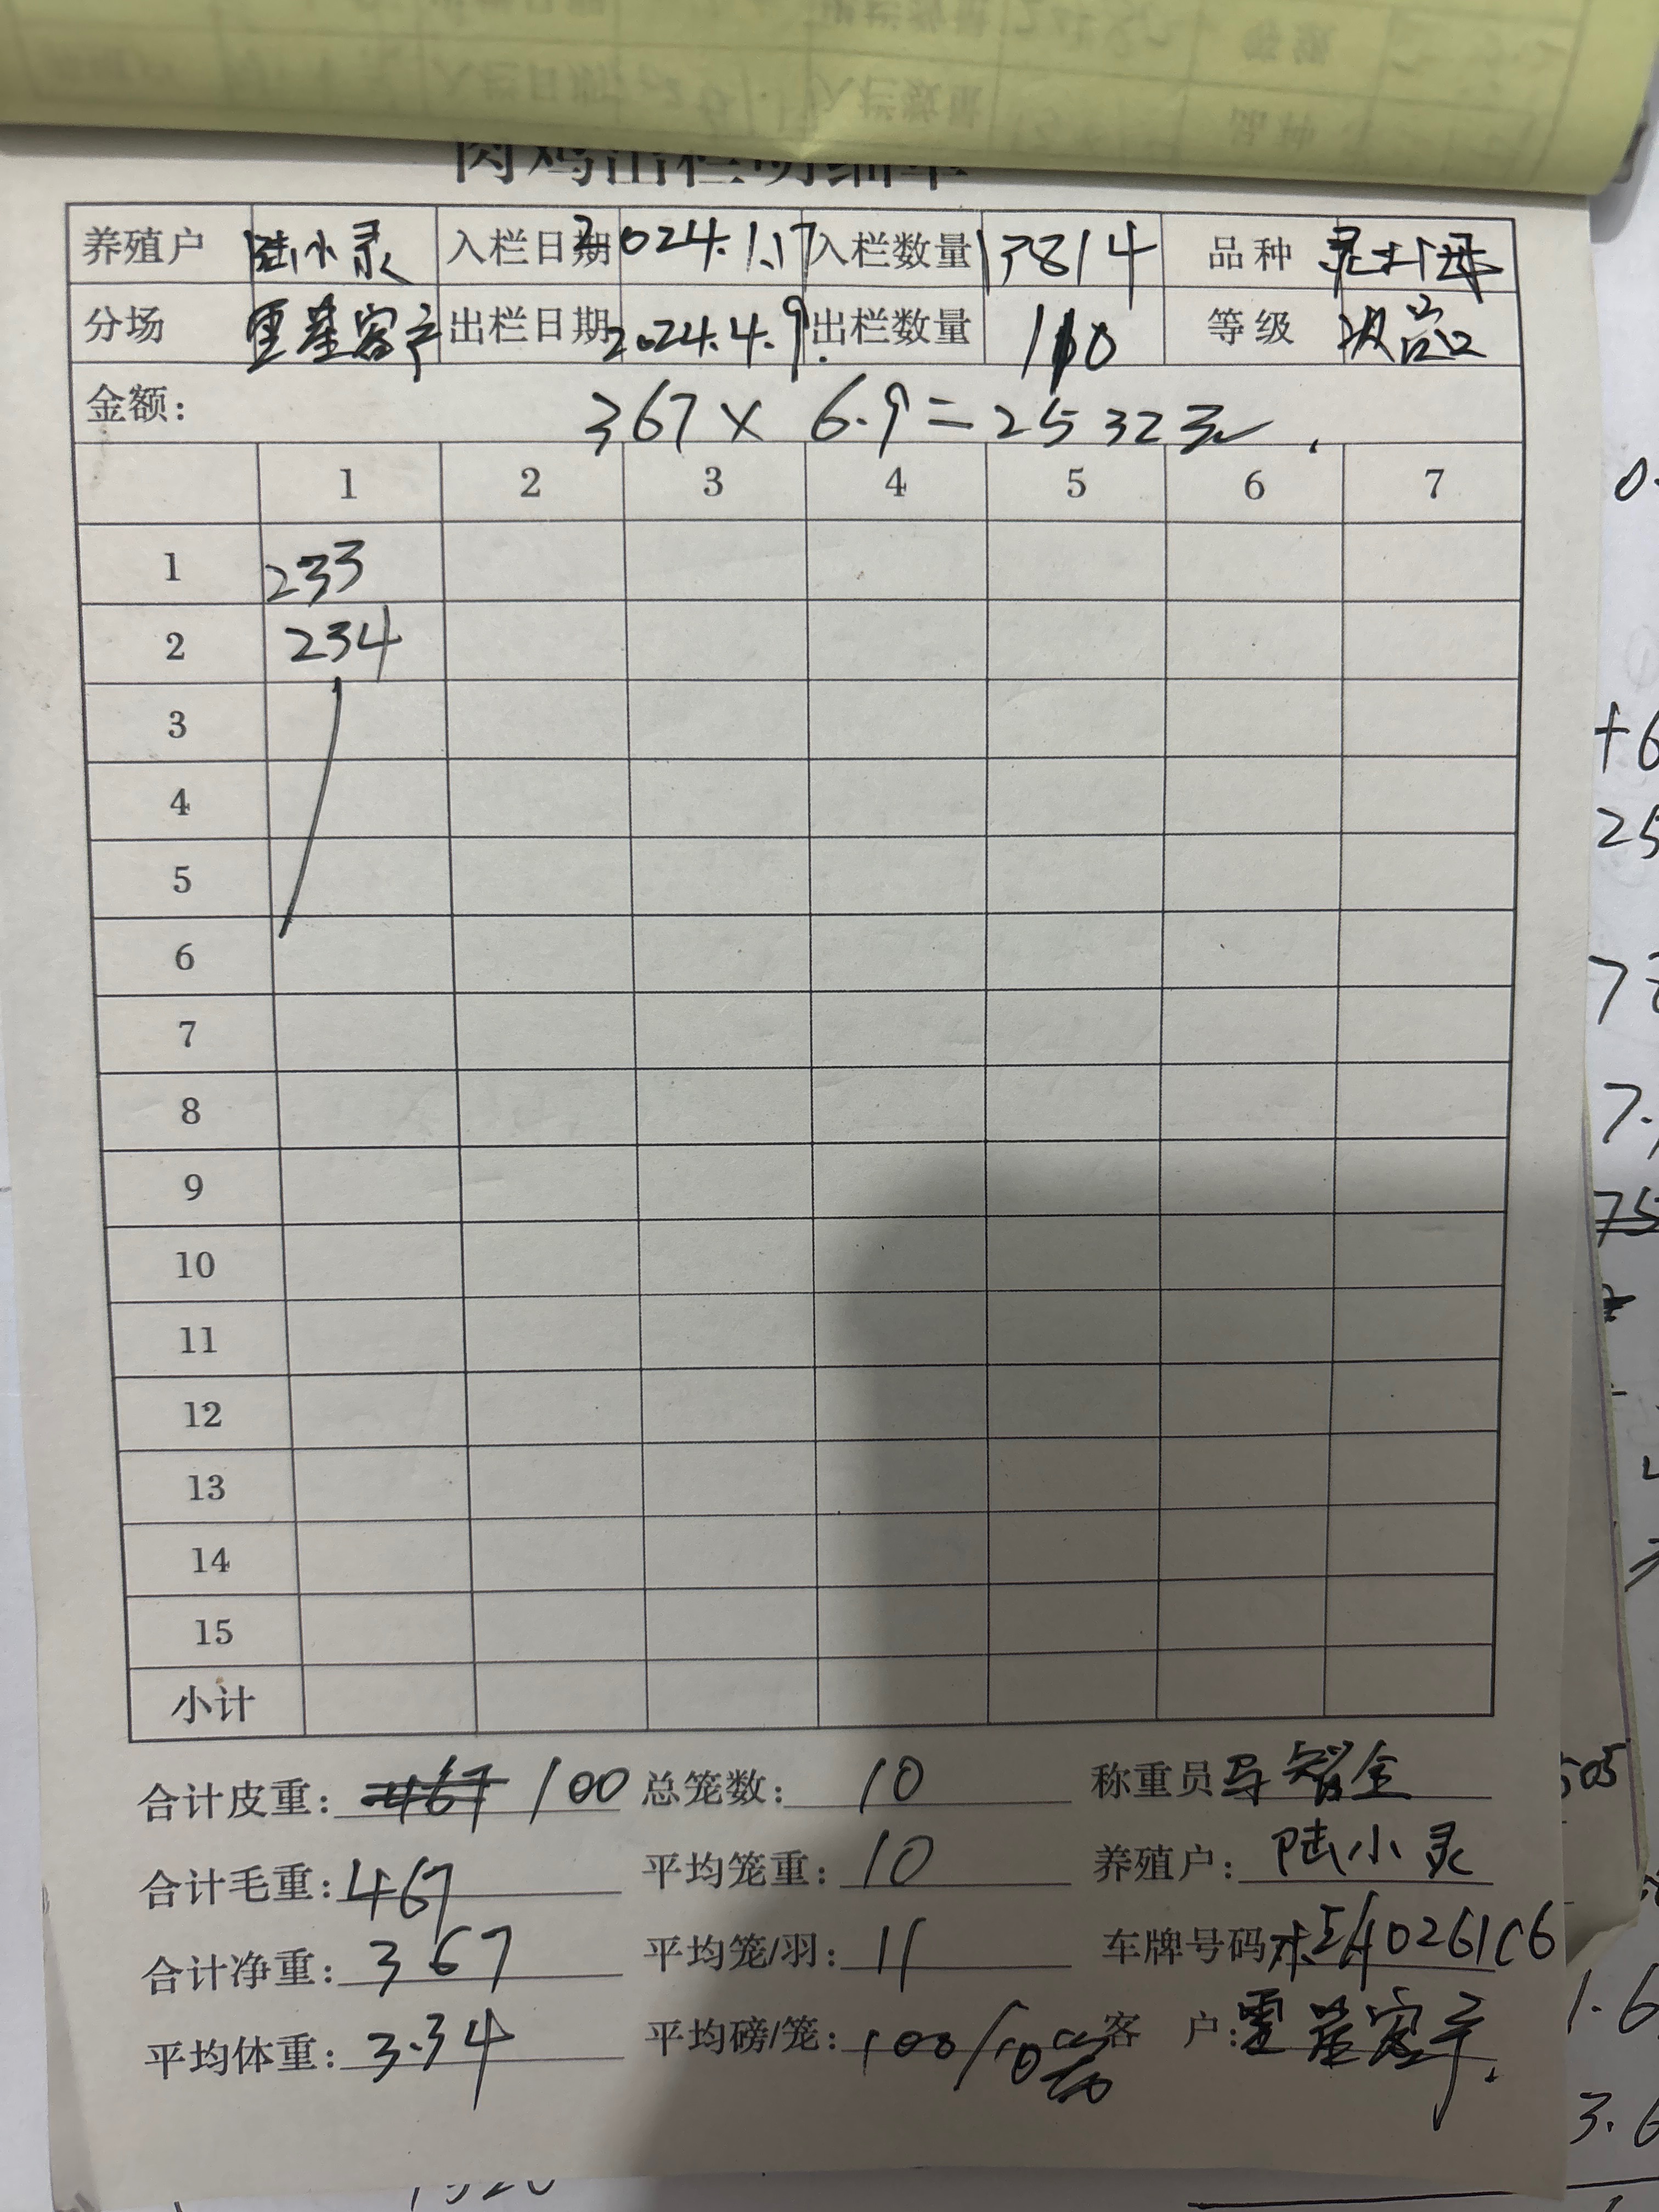 肉鸡出栏明细单
养殖户 陆小灵 入栏日期 2024.1.17 入栏数量 13814 品种 灵土1母
分场 里基客户 出栏日期 2024.4.9. 出栏数量 110 等级 次品
金额: 367 × 6.9 = 2532元
1 2 3 4 5 6 7
1 233
2 234
3
4
5
6
7
8
9
10
11
12
13
14
15
小计
合计皮重: 100 总笼数: 10 称重员 智全
合计毛重: 467 平均笼重: 10 养殖户: 陆小灵
合计净重: 367 平均笼/羽: 11 车牌号码 0261C6
平均体重: 3.34 平均磅/笼: 100/10 客 户: 客户